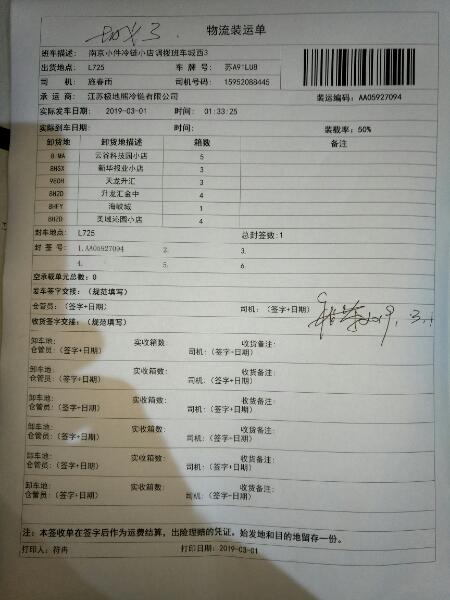 城西3
物流装运单
班车描述: 南京小件冷链小店调拨班车城西3
出货地点: L725 车 牌 号: 苏A91LU8
司 机: 施春雨 司机号码: 15952088445
承 运 商: 江苏极地熊冷链有限公司 装运编码: AA05927094
实际发车日期: 2019-03-01 时间: 01:33:25
实际到车日期: 时间: 装载率: 50%
卸货地 卸货地描述 箱数 备注
云谷科技园小店 5
8HSX 新华报业小店 3
980H 天龙升汇 3
8HZD 升龙汇金中 4
8HFY 海峡城 1
8HZB 美域沁园小店 4
封车地点: L725 总封签数:1
封 签 号: 1.AA05927094 2. 3.
4. 5. 6.
空承载单元总数: 0
发车签字交接: (规范填写)
仓管员: (签字+日期) 司机: (签字+日期)
收货签字交接: (规范填写)
卸车地: 实收箱数: 收货备注:
仓管员: (签字+日期) 司机: (签字+日期)
卸车地: 实收箱数: 收货备注:
仓管员: (签字+日期) 司机: (签字+日期)
卸车地: 实收箱数: 收货备注:
仓管员: (签字+日期) 司机: (签字+日期)
卸车地: 实收箱数: 收货备注:
仓管员: (签字+日期) 司机: (签字+日期)
卸车地: 实收箱数: 收货备注:
仓管员: (签字+日期) 司机: (签字+日期)
卸车地: 实收箱数: 收货备注:
仓管员: (签字+日期) 司机: (签字+日期)
注: 本签收单在签字后作为运费结算, 出险理赔的凭证. 始发地和目的地留存一份.
打印人: 符冉 打印日期: 2019-03-01